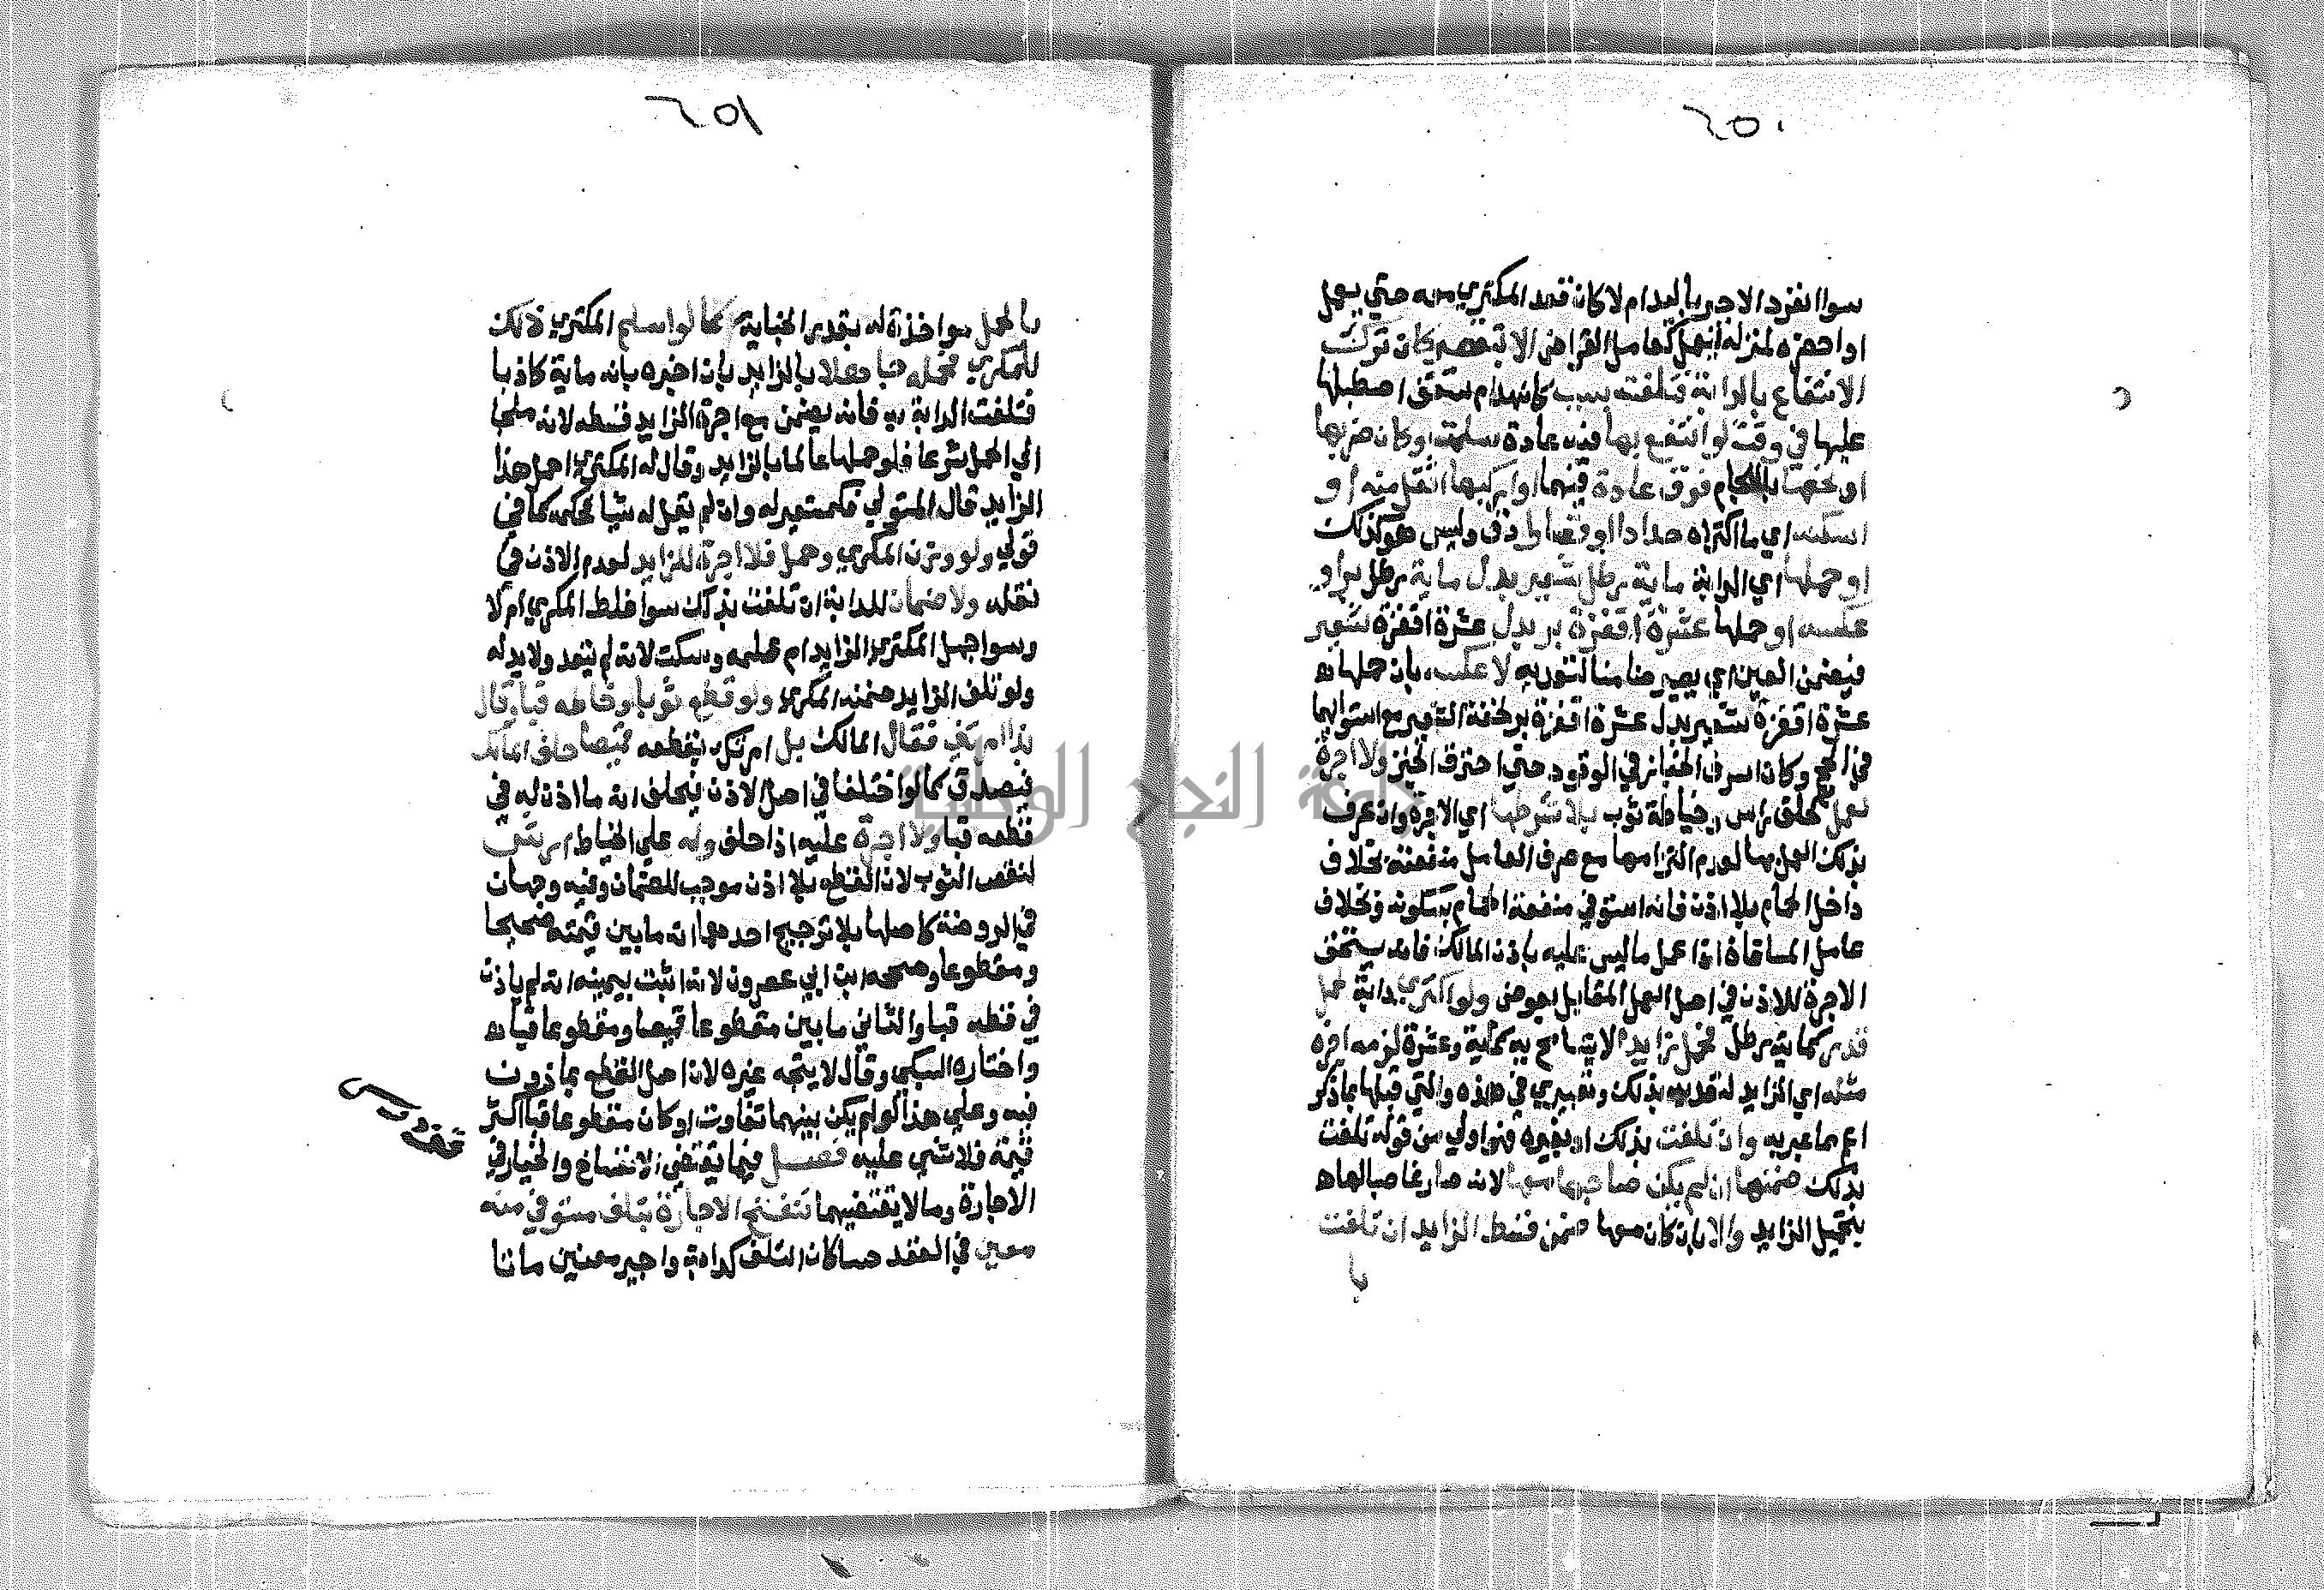 ٢٥٠
سوا انفرد الاجير باليد ام لا كان قعد المكتري معه حتي يعمل
او احضره لمنزله ليعمل كعامل القراض الا بتقصير كان ترك
الانتفاع بالدابة فتلفت بسبب كانهدام سقف اصطبلها
عليها في وقت لو انتفع بها فيه عادة سلمت او كان ضربها
او نخعها باللجام فوق عادة فيهما او اركبها اثقل منه او
اسكنه اي ما اكتراه حدادا او قصارا دق وليس هو كذلك
او حملها اي الدابة ماية رطل شعير بدل ماية رطل بر او
عكسه او حملها عشرة اقفزة بر بدل عشرة اقفزة شعير
فيضمن العين اي يصير ضامنا لتعديه لا عكسه بان حملها
عشرة اقفزة شعير بدل عشرة اقفزة بر لخفة الشعير مع استوايهما
في الحجم وكان اسرف الخباز في الوقود حتي احترق الخبز ولا اجرة
لعمل كحلق راس وخياطة ثوب بلا شرطها اي الاجرة وان عرف
بذلك العمل بها لعدم التزامها مع صرف العامل منفعته بخلاف
داخل الحمام بلا اذن فانه استوفي منفعة الحمام بسكونه وبخلاف
عامل المساقاة اذا عمل ما ليس عليه باذن المالك فانه يستحق
الاجرة للاذن في اصل العمل المقابل بعوض ولو اكتري دابة لحمل
قدر كماية رطل فحمل زايدا لا يتسامح به كماية وعشرة لزمه اجرة
مثله اي الزايد لتعديه بذلك وتعبيري في هذه والتي قبلها بما ذكر
اعم مما عبر به وان تلفت بذلك او بغيره فهو اولي من قوله تلفت
بذلك ضمنها ان لم يكن صاحبها معها لانه صار غاصبا لها
بتحميل الزايد والا بان كان معها ضمن قسط الزايد ان تلفت
با
٢٥١
بالحمل مواخذة له بقدر الجناية كما لو اسلم المكتري ذلك
للمكري فحمله جاهلا بالزايد بان اخبره بانه ماية كاذبا
فتلفت الدابة به فانه يضمن مع اجرة الزايد قسطه لانه ملجا
الي الحمل شرعا فلو حملها عالما بالزايد وقال له المكتري احمل هذا
الزايد قال المتولي فكمستعير له وان لم يقل له شيا فحكمه كما في
قولي ولو وزن المكري وحمل فلا اجرة للزايد لعدم الاذن في
نقله ولا ضمان للدابة ان تلفت بذلك سوا غلط المكري ام لا
وسوا جهل المكتري الزايد ام علمه وسكت لانه لم يتعد ولا يد له
ولو تلف الزايد ضمنه المكري ولو قطع ثوبا وخاطه قبا وقال
بذا امرتني فقال المالك بل امرتك بقطعه قميصا حلف المالك
فيصدق كما لو اختلفا في اصل الاذن فيحلف انه ما اذن له في
قطعه قبا ولا اجرة عليه اذا حلف وله علي الخياط ارش
لنقص الثوب لان القطع بلا اذن موجب للضمان وفيه وجهان
في الروضة كاصلها بلا ترجيح احدهما انه ما بين قيمته صحيحا
ومقطوعا وصححه ابن ابي عصرون لانه اثبت بيمينه انه لم ياذن
في قطعه قبا والثاني ما بين مقطوعا قميصا ومقطوعا قبا
واختاره السبكي وقال لا يتجه غيره لان اصل القطع ماذون
فيه وعلي هذا لو لم يكن بينهما تفاوت او كان مقطوعا قبا اكثر
قيمة فلا شي عليه فصل فيما يقتضي الانفساخ والخيار في
الاجارة وما لا يقتضيهما تنفسخ الاجارة بتلف مستوفي منه
معين في العقد حسا كان التلف كدابة واجير معينين ماتا